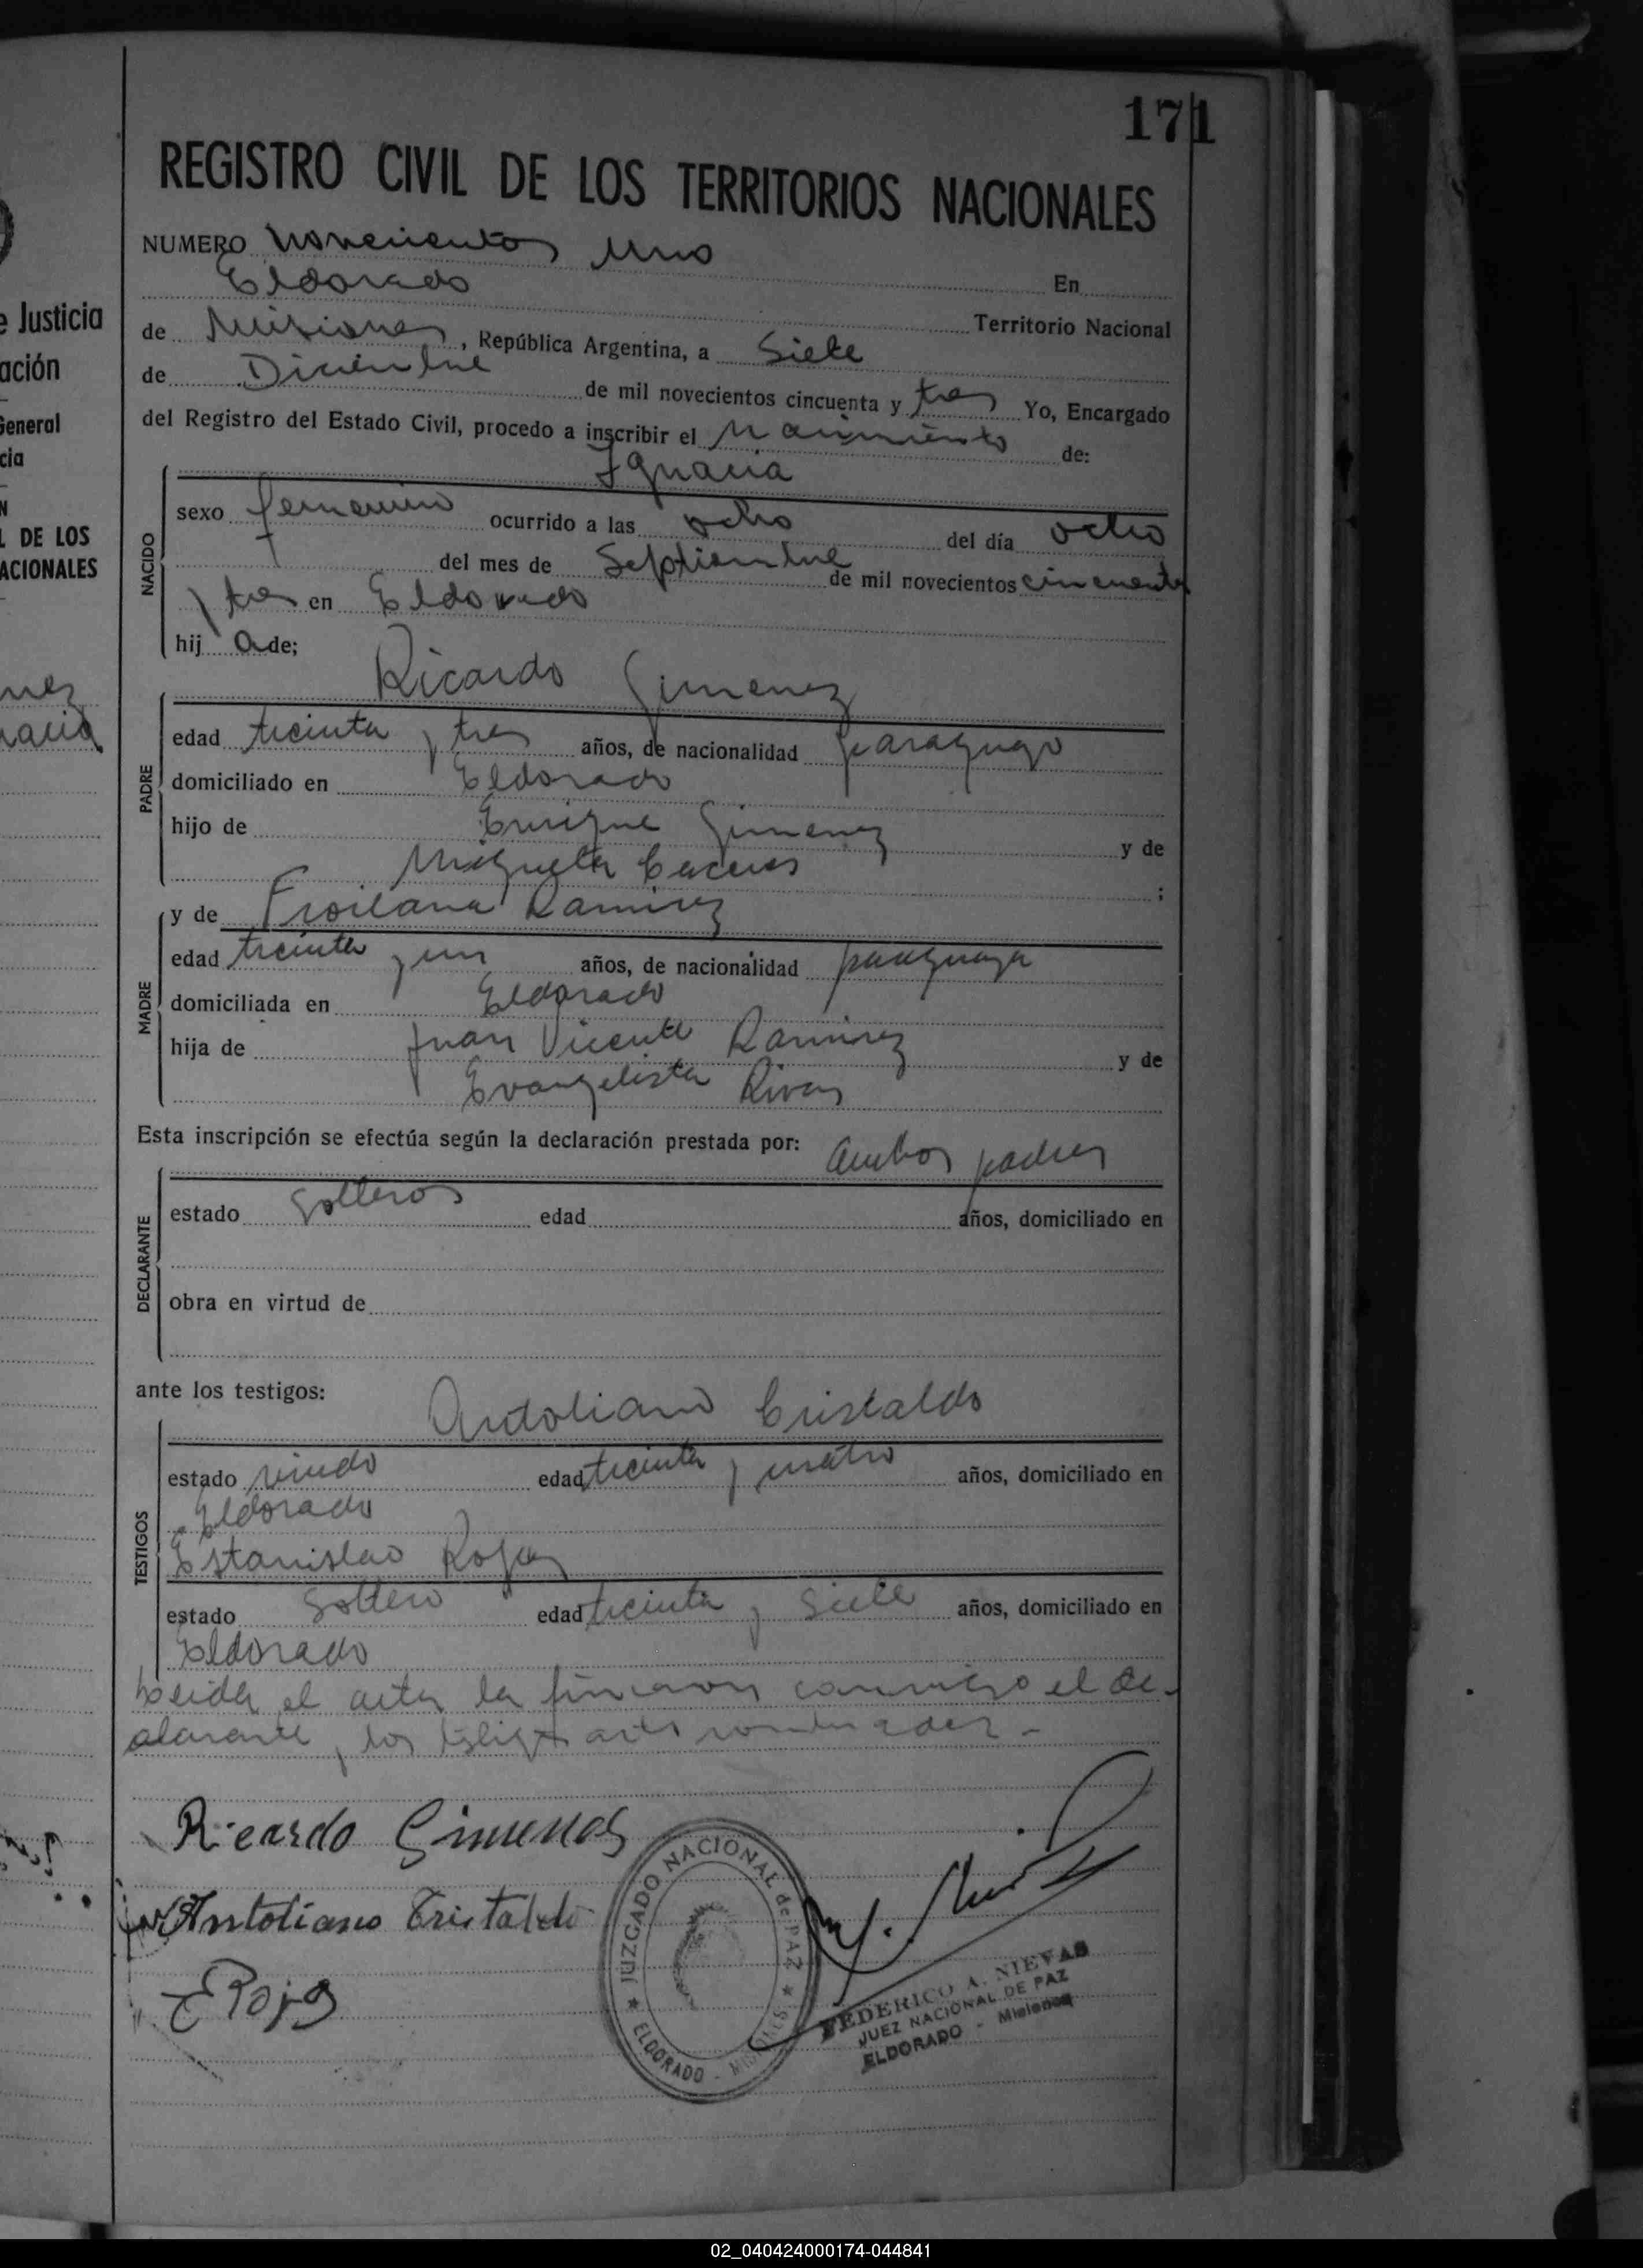 171
REGISTRO CIVIL DE LOS TERRITORIOS NACIONALES
NUMERO novecientos uno
Eldorado En
Territorio Nacional
de Misiones, República Argentina, a Siete
de Diciembre de mil novecientos cincuenta y tres Yo, Encargado
del Registro del Estado Civil, procedo a inscribir el Nacimiento de:
Ignacia
NACIDO
sexo femenino ocurrido a las ocho del día ocho
del mes de Septiembre de mil novecientos cincuenta
y tres en Eldorado
hij a de;
PADRE
Ricardo Gimenez
edad treinta y tres años, de nacionalidad paraguayo
domiciliado en Eldorado
hijo de Enrique Gimenez y de
Miguela Caceres ;
MADRE
y de Froilana Ramirez
edad treinta y un años, de nacionalidad paraguaya
domiciliada en Eldorado
hija de Juan Vicente Ramirez y de
Evangelista Rivas
Esta inscripción se efectúa según la declaración prestada por: ambos padres
DECLARANTE
estado solteros edad años, domiciliado en
obra en virtud de
ante los testigos: Antoliano Cristaldo
TESTIGOS
estado viudo edad treinta y cuatro años, domiciliado en
Eldorado
Estanislao Rojas
estado Soltero edad treinta y siete años, domiciliado en
Eldorado
Leida el acta la firmaron conmigo el de-
clarante y los testigos
Ricardo Gimenes
Antoliano Cristaldo
E Rojas
JUZGADO NACIONAL de PAZ
ELDORADO - MISIONES
FEDERICO A. NIEVAS
JUEZ NACIONAL DE PAZ
ELDORADO - Misiones
e Justicia
ación
General
cia
N
L DE LOS
ACIONALES
nez
nacia
02_040424000174-044841